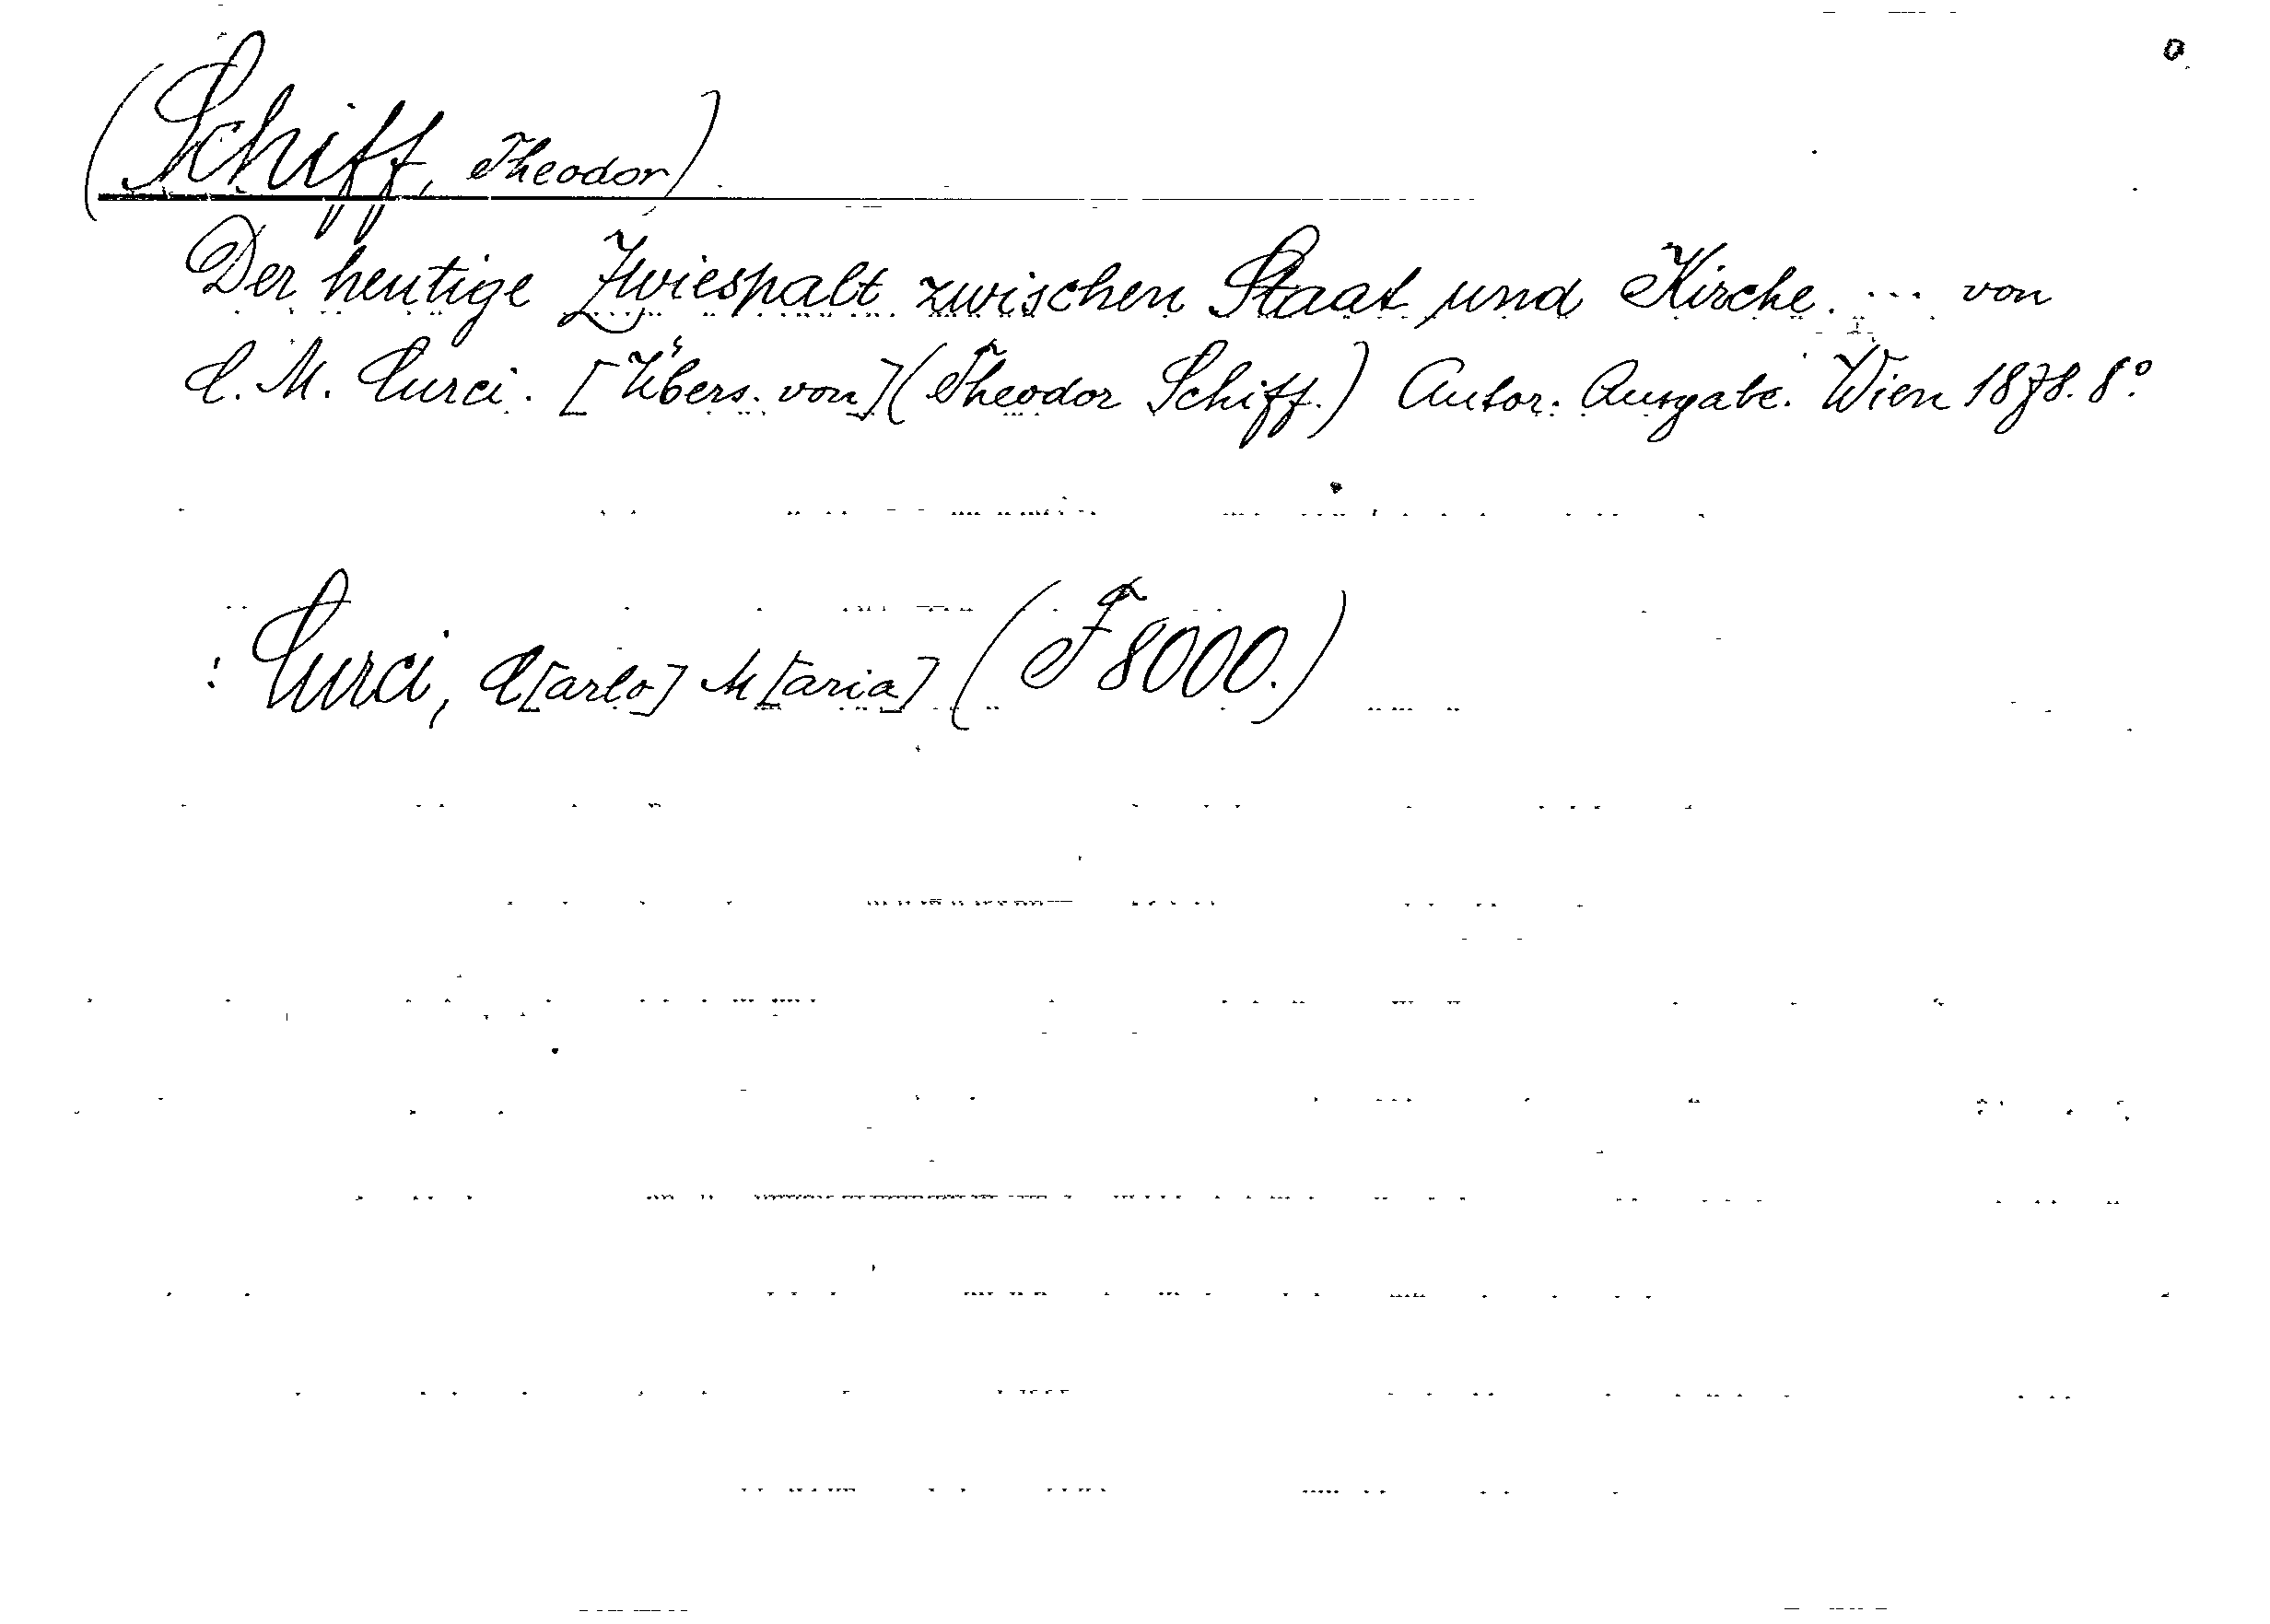 (Schiff, Theodor)
Der heutige Zwiespalt zwischen Staat und Kirche. ... von
C. M. Curci. [Übers. von] (Theodor Schiff.) Autor. Ausgabe. Wien 1878. 8°.
: Curci, C[arlo] M[aria] (F 8000.)